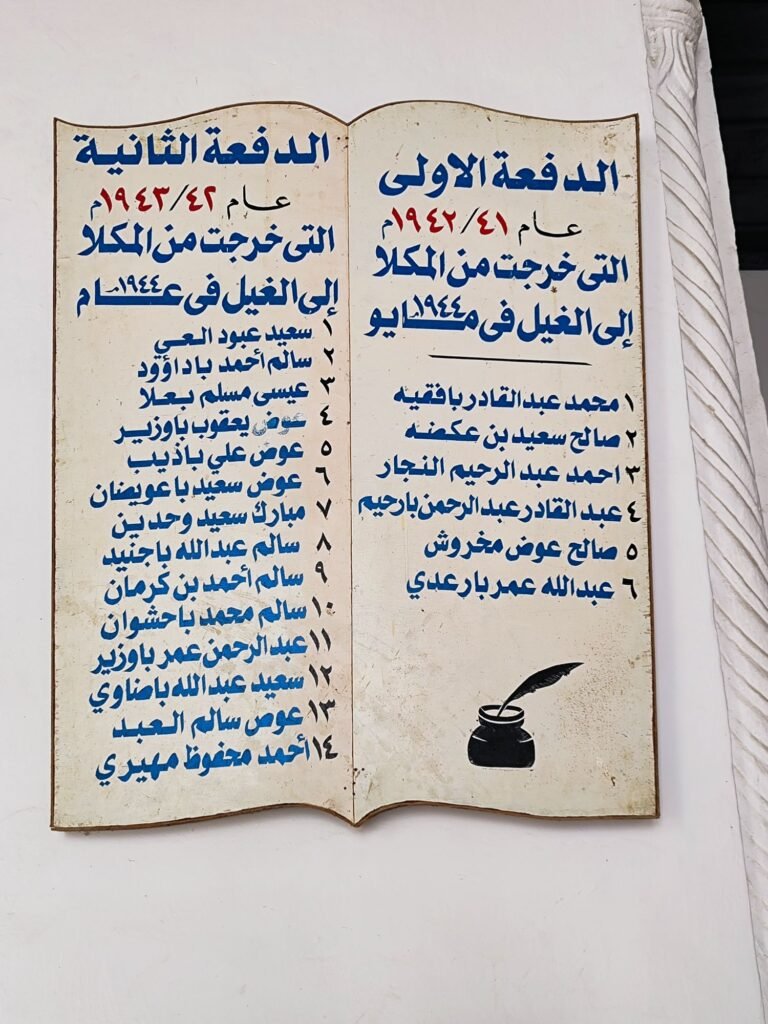 الدفعة الاولى
عام ١٩٤٢/٤١م
التى خرجت من المكلا
إلى الغيل فى مايو ١٩٤٤م
١ محمد عبدالقادر بافقيه
٢ صالح سعيد بن عكضه
٣ احمد عبد الرحيم النجار
٤ عبد القادر عبد الرحمن بارحيم
٥ صالح عوض مخروش
٦ عبدالله عمر بارعدي
الدفعة الثانية
عام ١٩٤٣/٤٢م
التى خرجت من المكلا
إلى الغيل فى عام ١٩٤٤م
١ سعيد عبود العي
٢ سالم أحمد باداؤود
٣ عيسى مسلم بعلا
٤ عوض يعقوب باوزير
٥ عوض علي باذيب
٦ عوض سعيد باعويضان
٧ مبارك سعيد وحدين
٨ سالم عبدالله باجنيد
٩ سالم أحمد بن كرمان
١٠ سالم محمد باحشوان
١١ عبدالرحمن عمر باوزير
١٢ سعيد عبدالله باضاوي
١٣ عوض سالم العبد
١٤ أحمد محفوظ مهيري